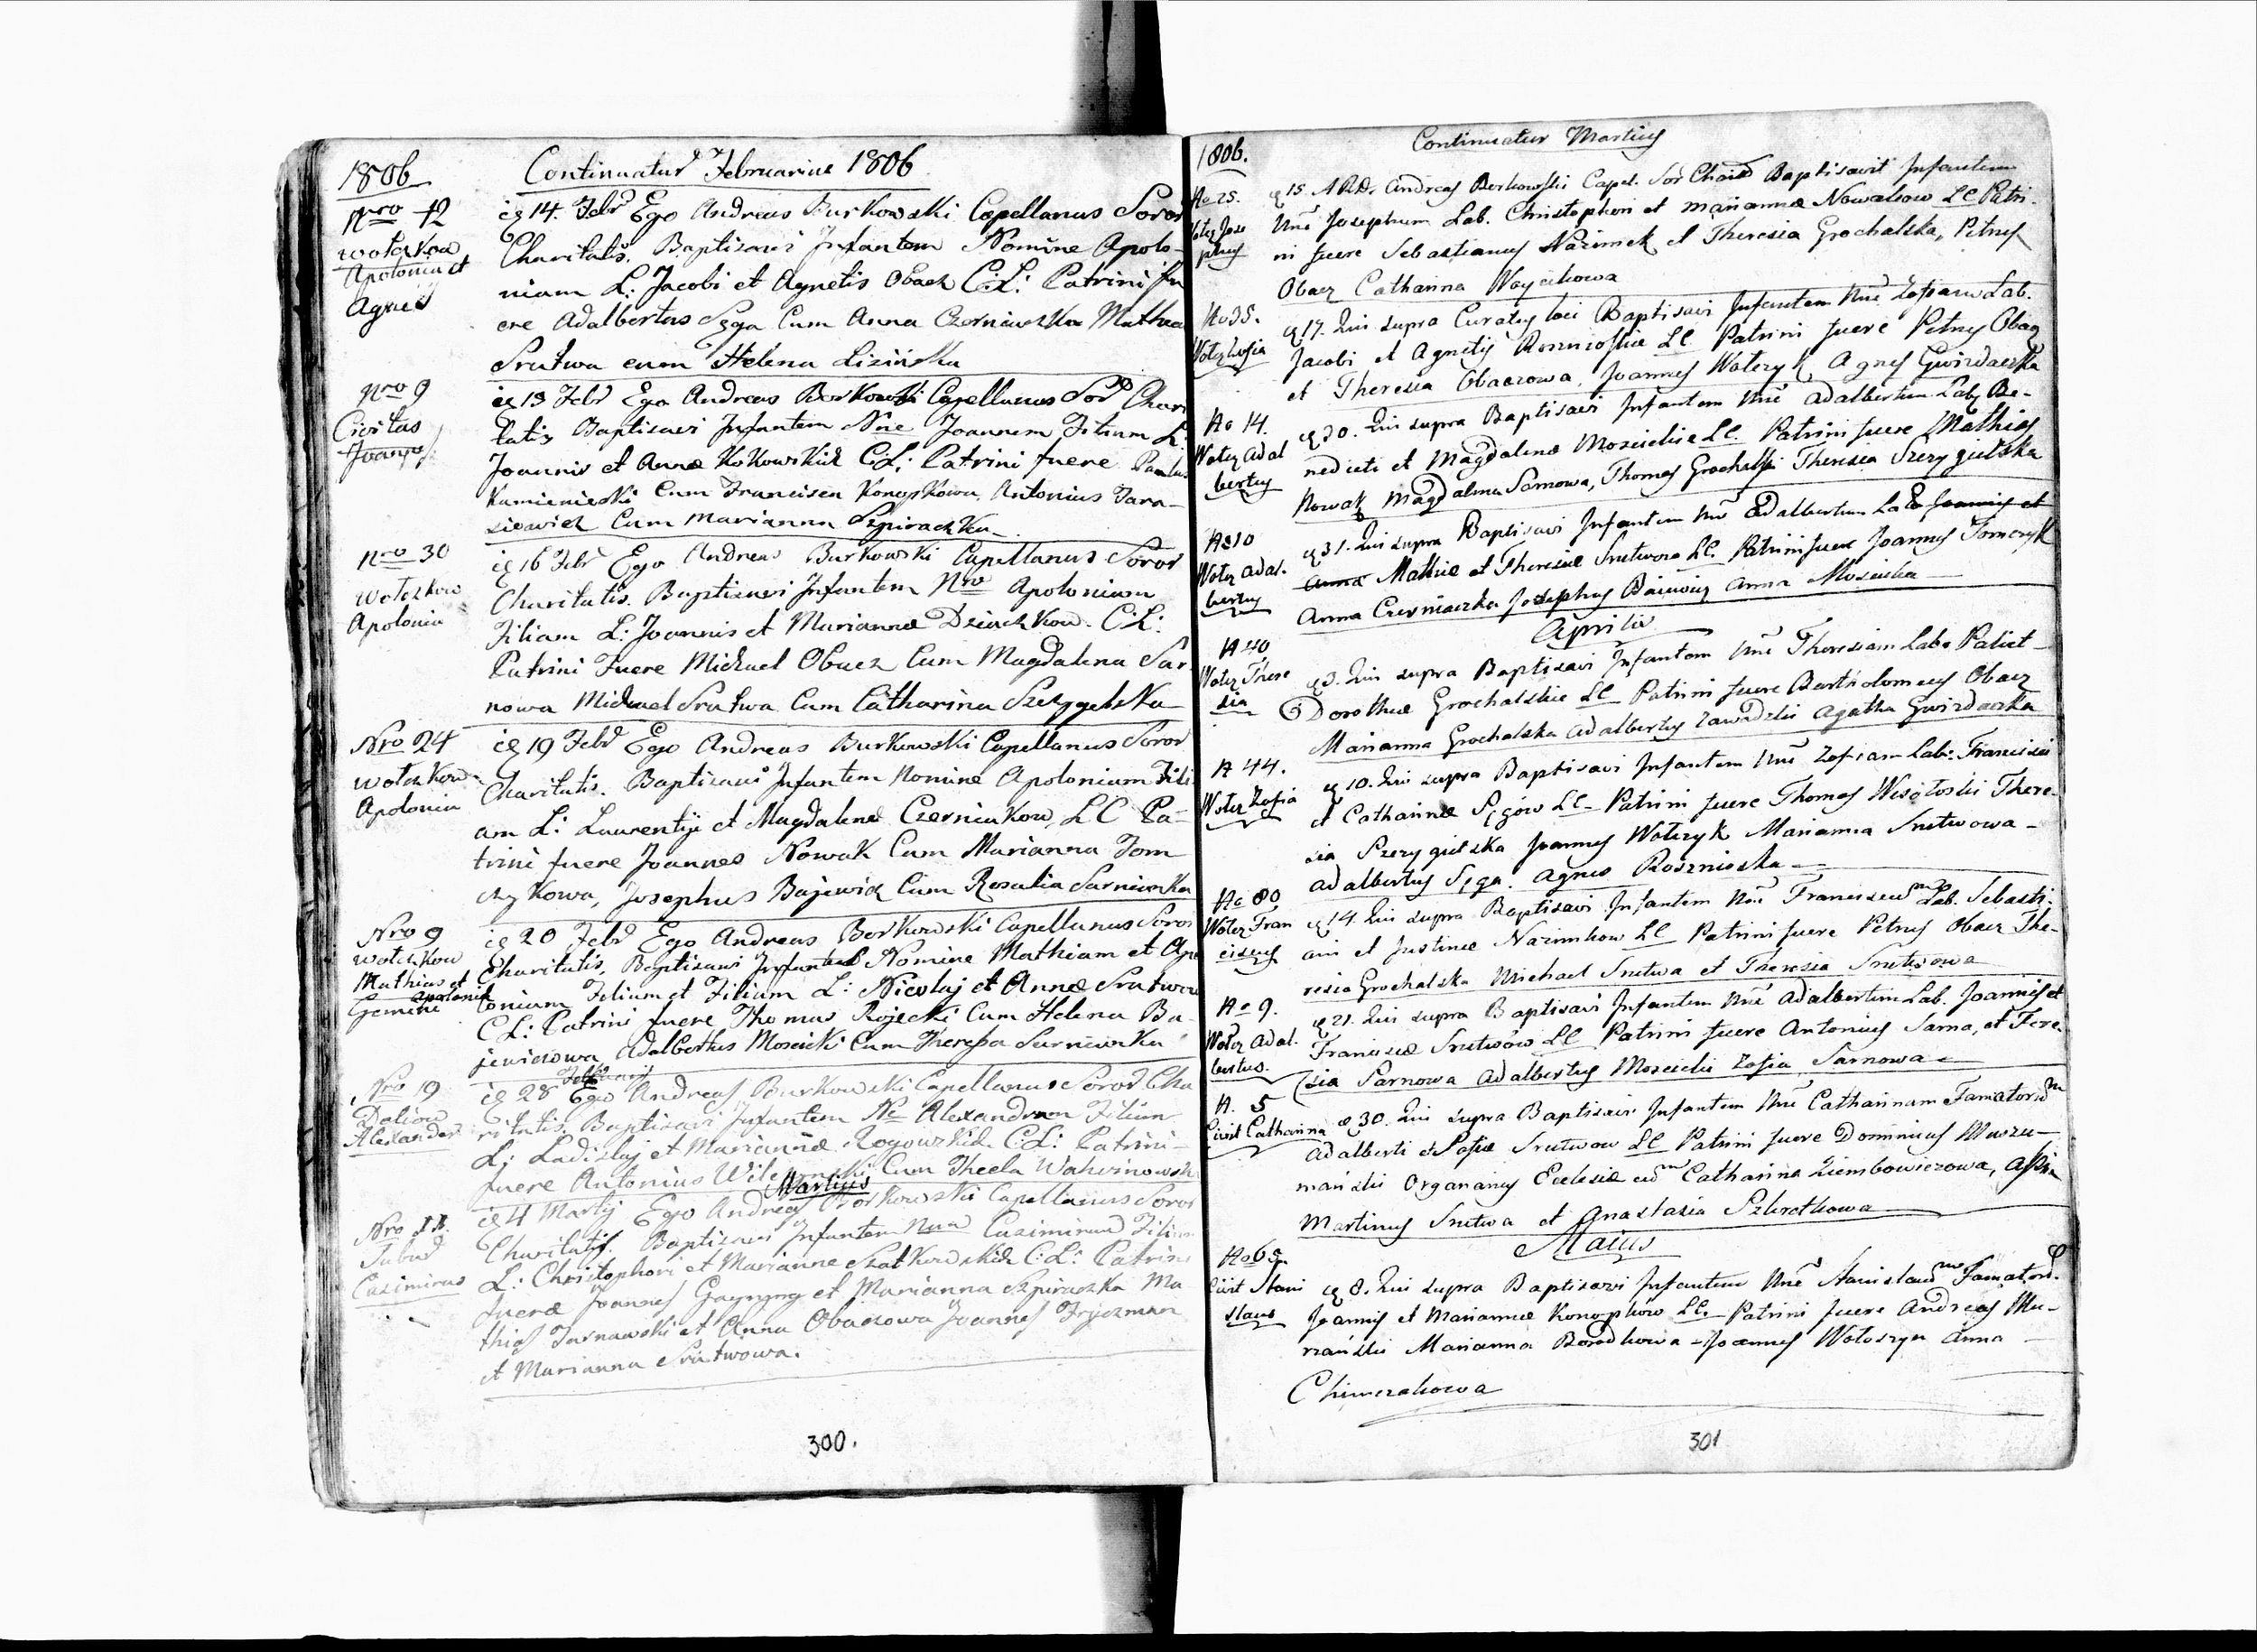 1806
Continuatur Februarius 1806
Nro 12
Apolonia et
Agnes
14. Febr Ego Andreas Burkowski Capellanus Soror
Charitatis. Baptisavi Infantem Nomine Apolo-
niam L: Jacobi et Agnetis Obacz C:L: Patrini fu
ere Adalbertus Sęga Cum Anna Czerniaszka Mathia
Srutwa cum Helena Lizińska
Nro 9
Civitas
Joanes
13 Febr Ego Andreas Borkowski Capellanus Sor Chari
tatis Baptisavi Infantem Nne Joannem Filium L:
Joannis et Anna Kokowskich C:L: Patrini fuere Paulus
Kamieniecki Cum Francisca Konopkowa, Antonius Tara-
siewicz Cum Marianna Szpiraczka
Nro 30
Apolonia
16 Febr Ego Andreas Burkowski Capellanus Soror
Charitatis. Baptisavi Infantem Nro Apoloniam
Filiam L: Joannis et Marianna Dziaczkow. C:L:
Patrini Fuere Michael Obacz Cum Magdalena Sar-
nowa Michael Srutwa Cum Catharina Szczygielska
Nro 24
Apolonia
19 Febr Ego Andreas Burkowski Capellanus Soror
Charitatis. Baptisavi Infantem Nomine Apoloniam Fili
am L: Laurentij et Magdalena Czerniakow, LC Pa-
trini fuere Joannes Nowak Cum Marianna Tom
czykowa, Josephus Bajewicz Cum Rosalia Sarniowka
Nro 9
Mathias et
Apolonia
Gemini
20 Febr Ego Andreas Borkowski Capellanus Soror
Charitatis, Baptisavi Infantes Nomine Mathiam et Apo
loniam Filium et Filiam L: Nicolaj et Anna Srutwow
C:L: Patrini fuere Thomas Rojecki Cum Helena Ba-
jewiczowa, Adalbertus Moscicki Cum Theresa Sarniowka
Nro 19
Alexander
Februarij
28 Ego Andreas Burkowski Capellanus Soror Cha
ritatis. Baptisavi Infantem Ne Alexandrum Filium
L: Ladislaj et Marianna Rogowskich C:L: Patrini
fuere Antonius Cum Thecla
Martius
Nro 11.
Casimirus
4 Martij Ego Andreas Borkowski Capellanus Soror
Charitatis. Baptisavi Infantem Casimirum Filium
L: Christophori et Marianna C:L: Patrini
fuere Joannes et Marianna Szpiraczka Ma
thias Tarnawski et Anna Obaczowa Joannes
et Marianna Srutwowa.
300.
1806.
Continuatur Martius
No 25.
15. A.R.D. Andreas Borkowski Capel. Sor Charit Baptisavit Infantem
Nne Josephum Lab. Christophori et Marianna Nowakow LC Patri-
ni fuere Sebastianus Nazimek et Theresia Grochalska, Petrus
Obacz Catharina Woycikowa
No 35.
Wołcz Zofia
17. Qui supra Curatus loci Baptisavi Infantem Nne Zofiam Lab.
Jacobi et Agnetis LC Patrini fuere Petrus Obacz
et Theresia Obaczowa, Joannes Wołczyk, Agnes Gwizdaczka
No 14.
Wołcz Adal
bertus
30. Qui supra Baptisavi Infantem Nne Adalbertum Lab. Be-
nedicti et Magdalena Moscickie LC. Patrini fuere Mathias
Nowak Magdalena Sarnowa, Thomas Grochalski Theresia Szczygielska
No 10
Wołcz Adal-
bertus
31. Qui supra Baptisavi Infantem Nne Adalbertum Lab Joannis et
Anna Mathiæ et Theresiæ Srutwow LC. Patrini fuere Joannes Tomczyk
Anna Czerniaczka Josephus Baiewicz Anna Moscicka
Aprilis
N 40
Wołcz There
sia
3. Qui supra Baptisavi Infantem Nne Theresiam Labo
Dorothæ Grochalskie LC Patrini fuere Bartholomeus Obacz
Marianna Grochalska Adalbertus Zawadzki Agatha Gwizdaczka
N 44.
Wołcz Zofia
10. Qui supra Baptisavi Infantem Nne Zofiam Lab: Francisci
et Catharinæ Sęgow LC Patrini fuere Thomas Wisołoski There-
sia Szczygielska Joannes Wołczyk Marianna Srutwowa -
Adalbertus Sęga. Agnes Rosznioska
No 80
Wołcz Fran
ciscus
14. Qui supra Baptisavi Infantem Nne Franciscum Lab. Sebasti-
ani et Justinæ Nazimkow LC Patrini fuere Petrus Obacz The-
resia Grochalska Michael Srutwa et Theresia Srutwowa
No 9.
Wołcz Adal-
bertus.
21. Qui supra Baptisavi Infantem Nne Adalbertum Lab. Joannis et
Franciscæ Srutwow LC Patrini fuere Antonius Sarna, et There-
sia Sarnowa Adalbertus Moscicki Zofia Sarnowa
N. 5
Civit Catharina
30. Qui supra Baptisavi Infantem Nne Catharinam Famator
Adalberti et Sofiæ Srutwow LC Patrini fuere Dominicus Muszu-
mański Organarius Ecclesiæ Catharina Ziembowiczowa,
Martinus Srutwa et Anastasia Szkretkowa
Maius
No 65
Civit Stani
slaus
8. Qui supra Baptisavi Infantem Nne Stanislaum Famator.
Joannis et Mariannæ Konopkow LC. Patrini fuere Andreas Mu-
rzański Marianna Borodkowa - Joannes Wołoszyn Anna
Chimczakowa
301